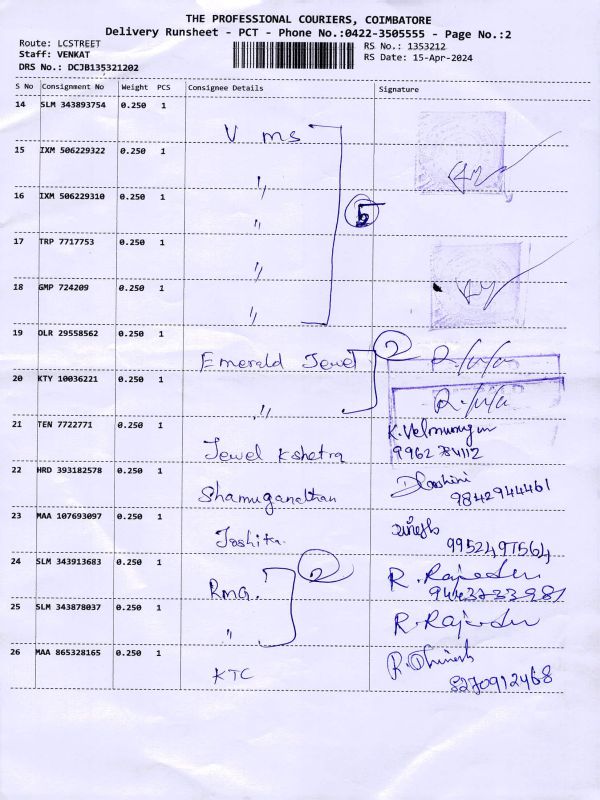 THE PROFESSIONAL COURIERS, COIMBATORE
Delivery Runsheet - PCT - Phone No.:0422-3505555 - Page No.:2
Route: LCSTREET
Staff: VENKAT
DRS No.: DCJB135321202
RS No.: 1353212
RS Date: 15-Apr-2024
S No Consignment No Weight PCS Consignee Details Signature
14 SLM 343893754 0.250 1
V ms
15 IXM 506229322 0.250 1
"
16 IXM 506229310 0.250 1
"
5
17 TRP 7717753 0.250 1
"
18 GMP 724209 0.250 1
"
19 DLR 29558562 0.250 1
Emerald Jewel 2
20 KTY 10036221 0.250 1
"
21 TEN 7722771 0.250 1
Jewel Kshetra K.Velmurugan
9962 84112
22 HRD 393182578 0.250 1
Shamuganathan Dharshini
9842944461
23 MAA 107693097 0.250 1
Joshita
9952497564
24 SLM 343913683 0.250 1
RMG. 2 R.Rajendren
9443733981
25 SLM 343878037 0.250 1
" R.Rajendren
26 MAA 865328165 0.250 1
KTC R.Dhinesh
8270912468